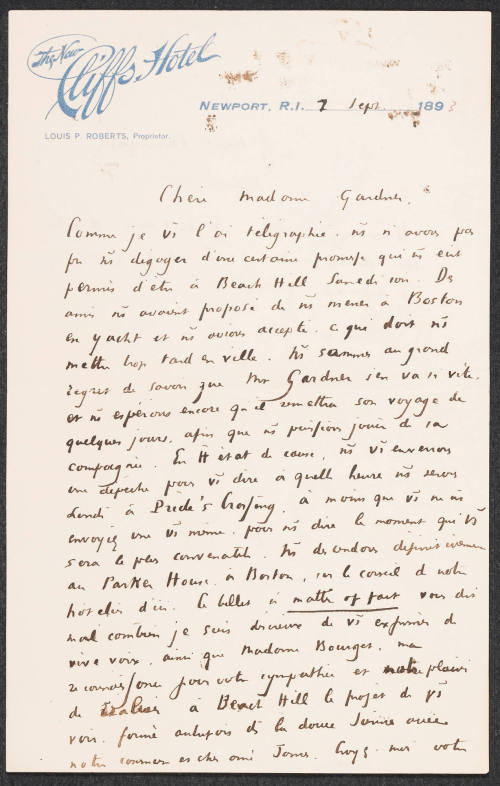 The New
Cliffs Hotel
LOUIS P. ROBERTS, Proprietor.
NEWPORT, R.I. 7 Sept. 1893
Chère Madame Gardner,
Comme je vs l'ai télégraphié. ns n'avons pas
pu ns dégager d'une certaine promesse qui ns eût
permis d'être à Beach Hill Samedi soir. Des
amis ns avaient proposé de ns mener à Boston
en yacht et ns avions accepté. ce qui doit ns
mettre trop tard en ville. Ns sommes au grand
regret de savoir que Mr Gardner s'en va si vite.
et ns espérons encore qu'il remettra son voyage de
quelques jours, afin que ns puissions jouir de sa
compagnie. En tt état de cause, ns vs enverrons
une dépêche pour vs dire à quelle heure ns serons
Lundi à Pride's Crossing, à moins que vs ne ns
envoyiez une vs même, pour ns dire le moment qui vs
sera le plus convenable. Ns descendons
au Parker House à Boston, sur le conseil de notre
hôtelier d'ici. Ce billet si matter of fact vous dit
mal combien je suis désireux de vs exprimer de
vive voix, ainsi que Madame Bourget, ma
reconnaissance pour votre sympathie et notre plaisir
de réaliser à Beach Hill le projet de vs
voir, formé autrefois ds la douce
notre commun et cher ami James. Croyez moi votre